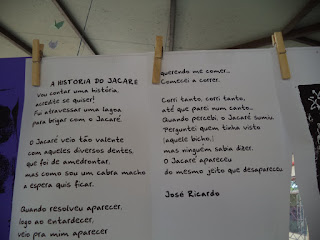 A HISTORIA DO JACARE
Vou contar uma história,
acredite se quiser!
Fui atravessar uma lagoa
para brigar com o Jacaré.
O Jacaré veio tão valente
com aqueles diversos dentes,
que foi de amedrontar,
mas como sou um cabra macho
a espera quis ficar.
Quando resolveu aparecer,
logo ao entardecer,
veio pra mim aparecer
querendo me comer...
Comecei a correr.
Corri tanto, corri tanto,
até que parei num canto...
Quando percebi, o Jacaré sumiu.
Perguntei quem tinha visto
(aquele bicho,)
mas ninguém sabia dizer.
O Jacaré apareceu
do mesmo jeito que desapareceu.
José Ricardo